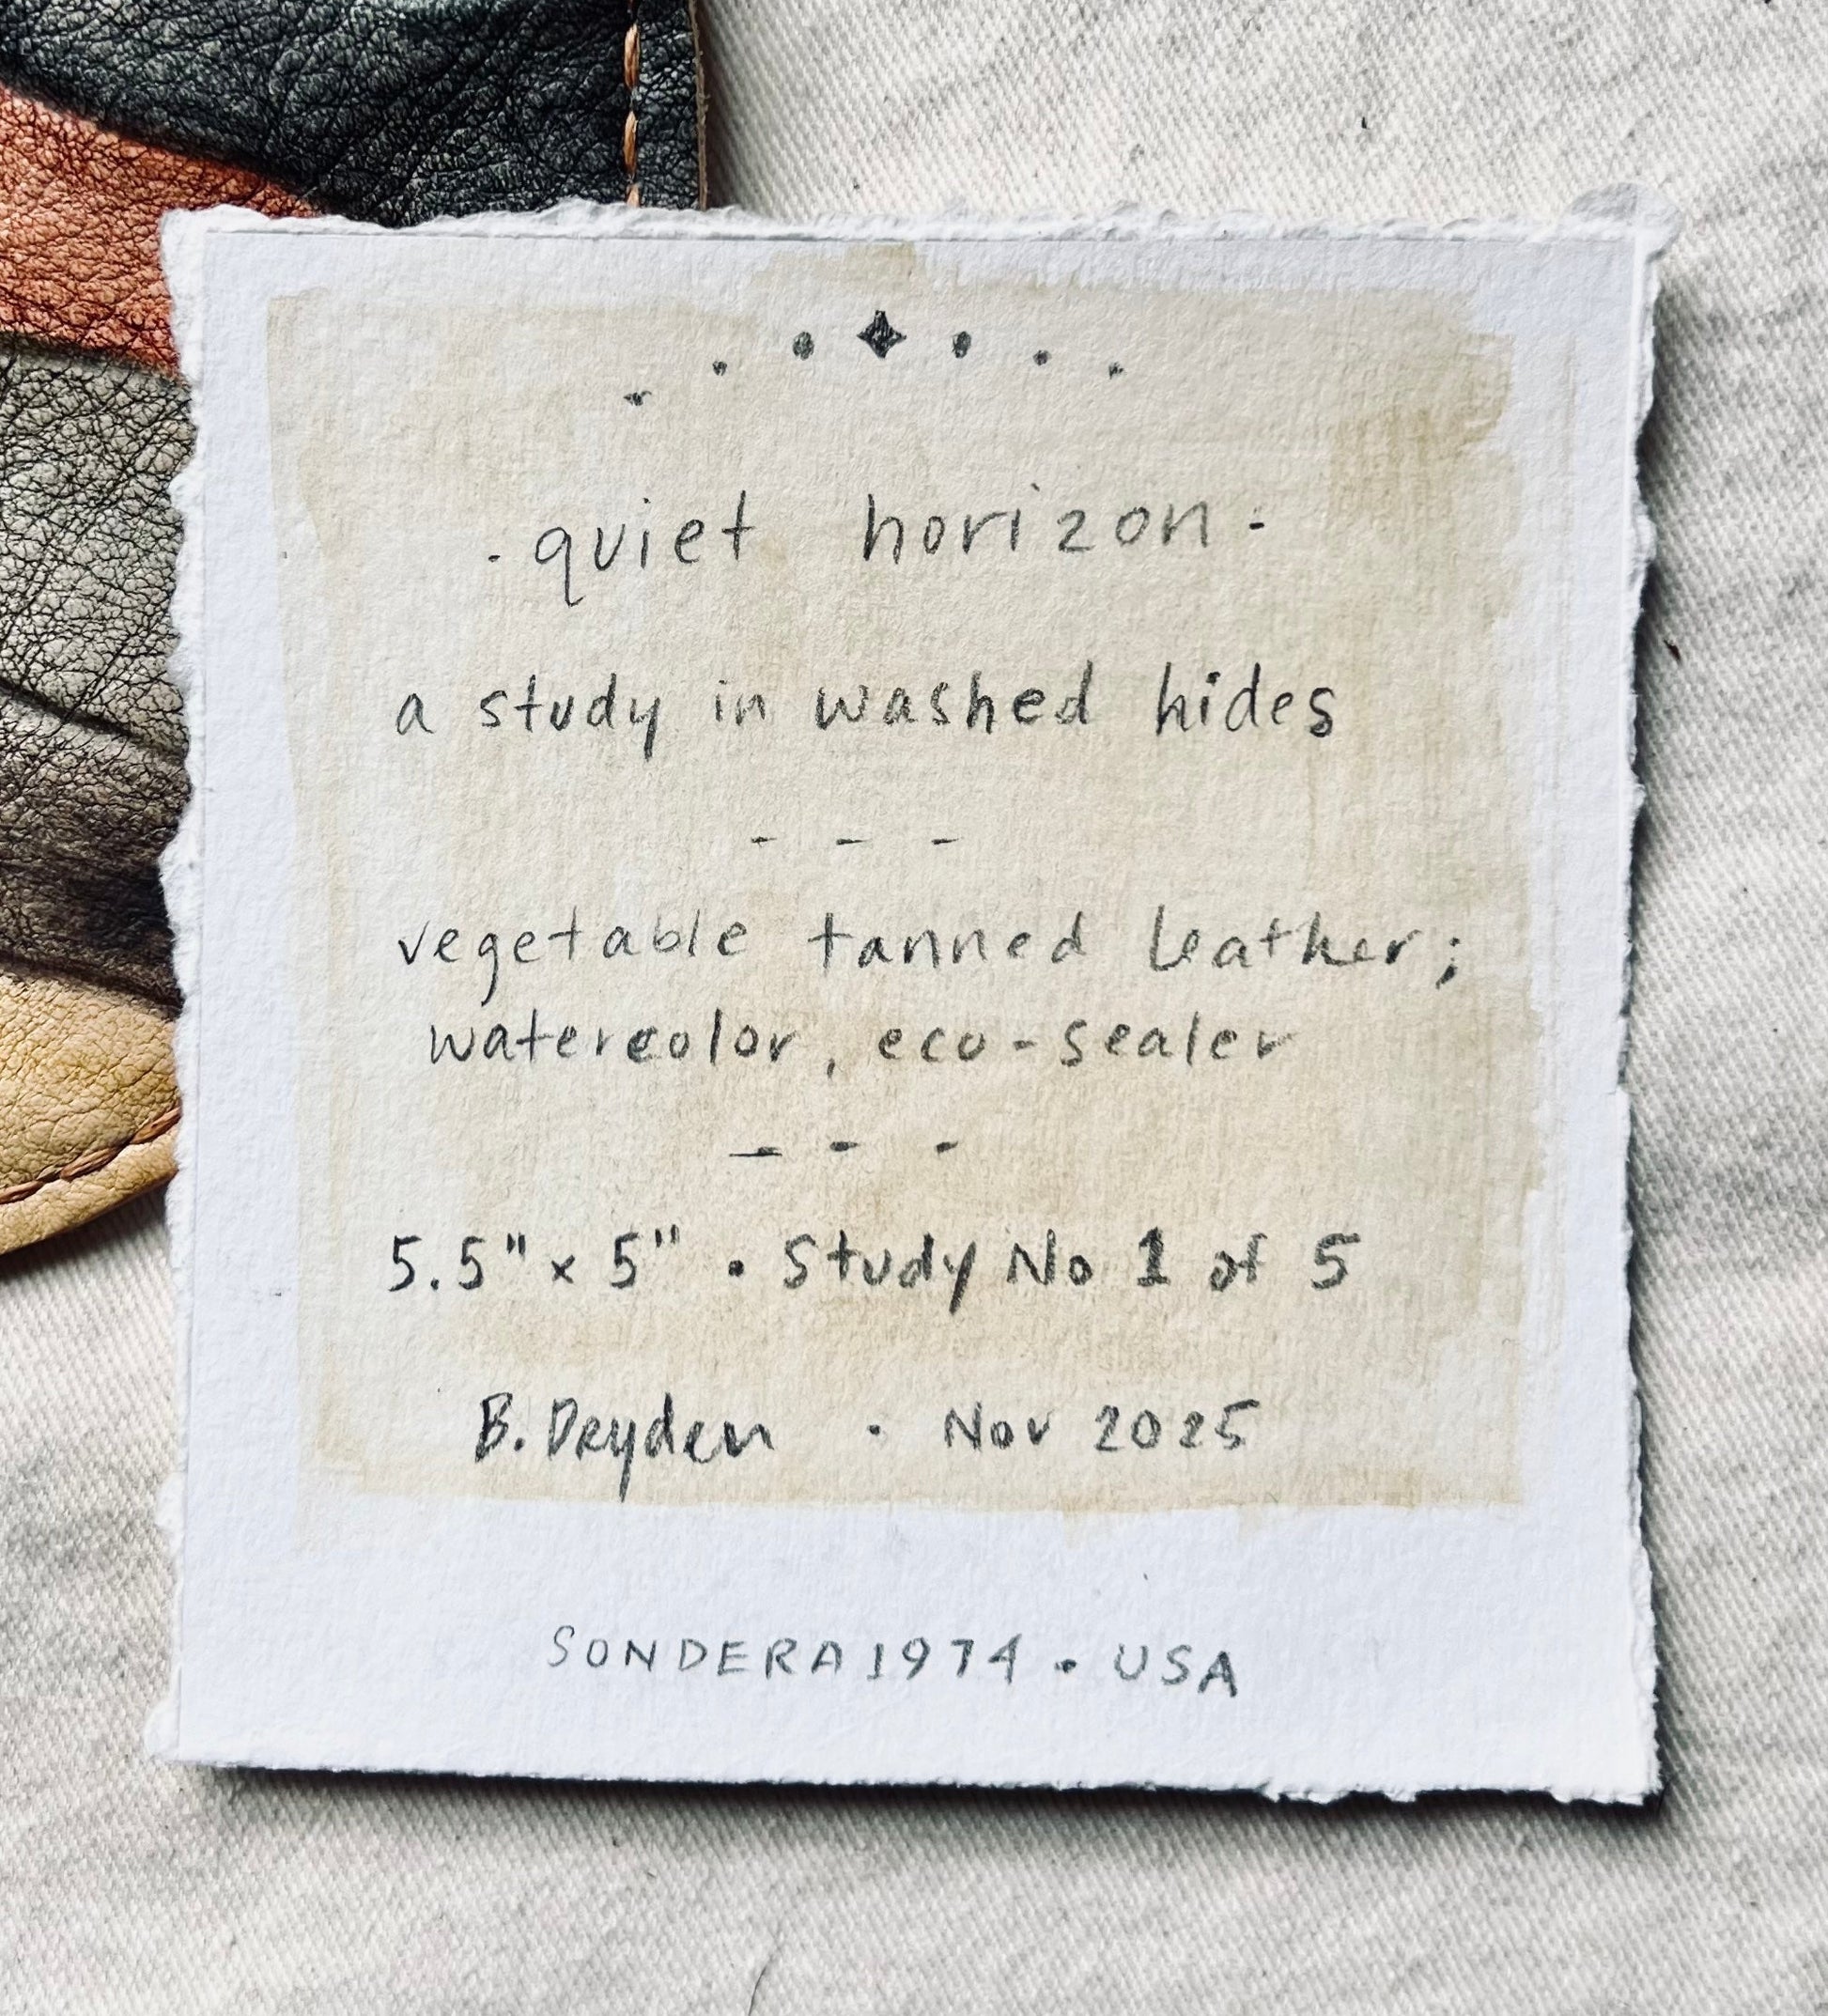 · quiet horizon ·
a study in washed hides
- - -
vegetable tanned leather;
watercolor, eco-sealer
- - -
5.5" x 5" • Study No 1 of 5
B. Dryden · Nov 2025
SONDERA1974 • USA